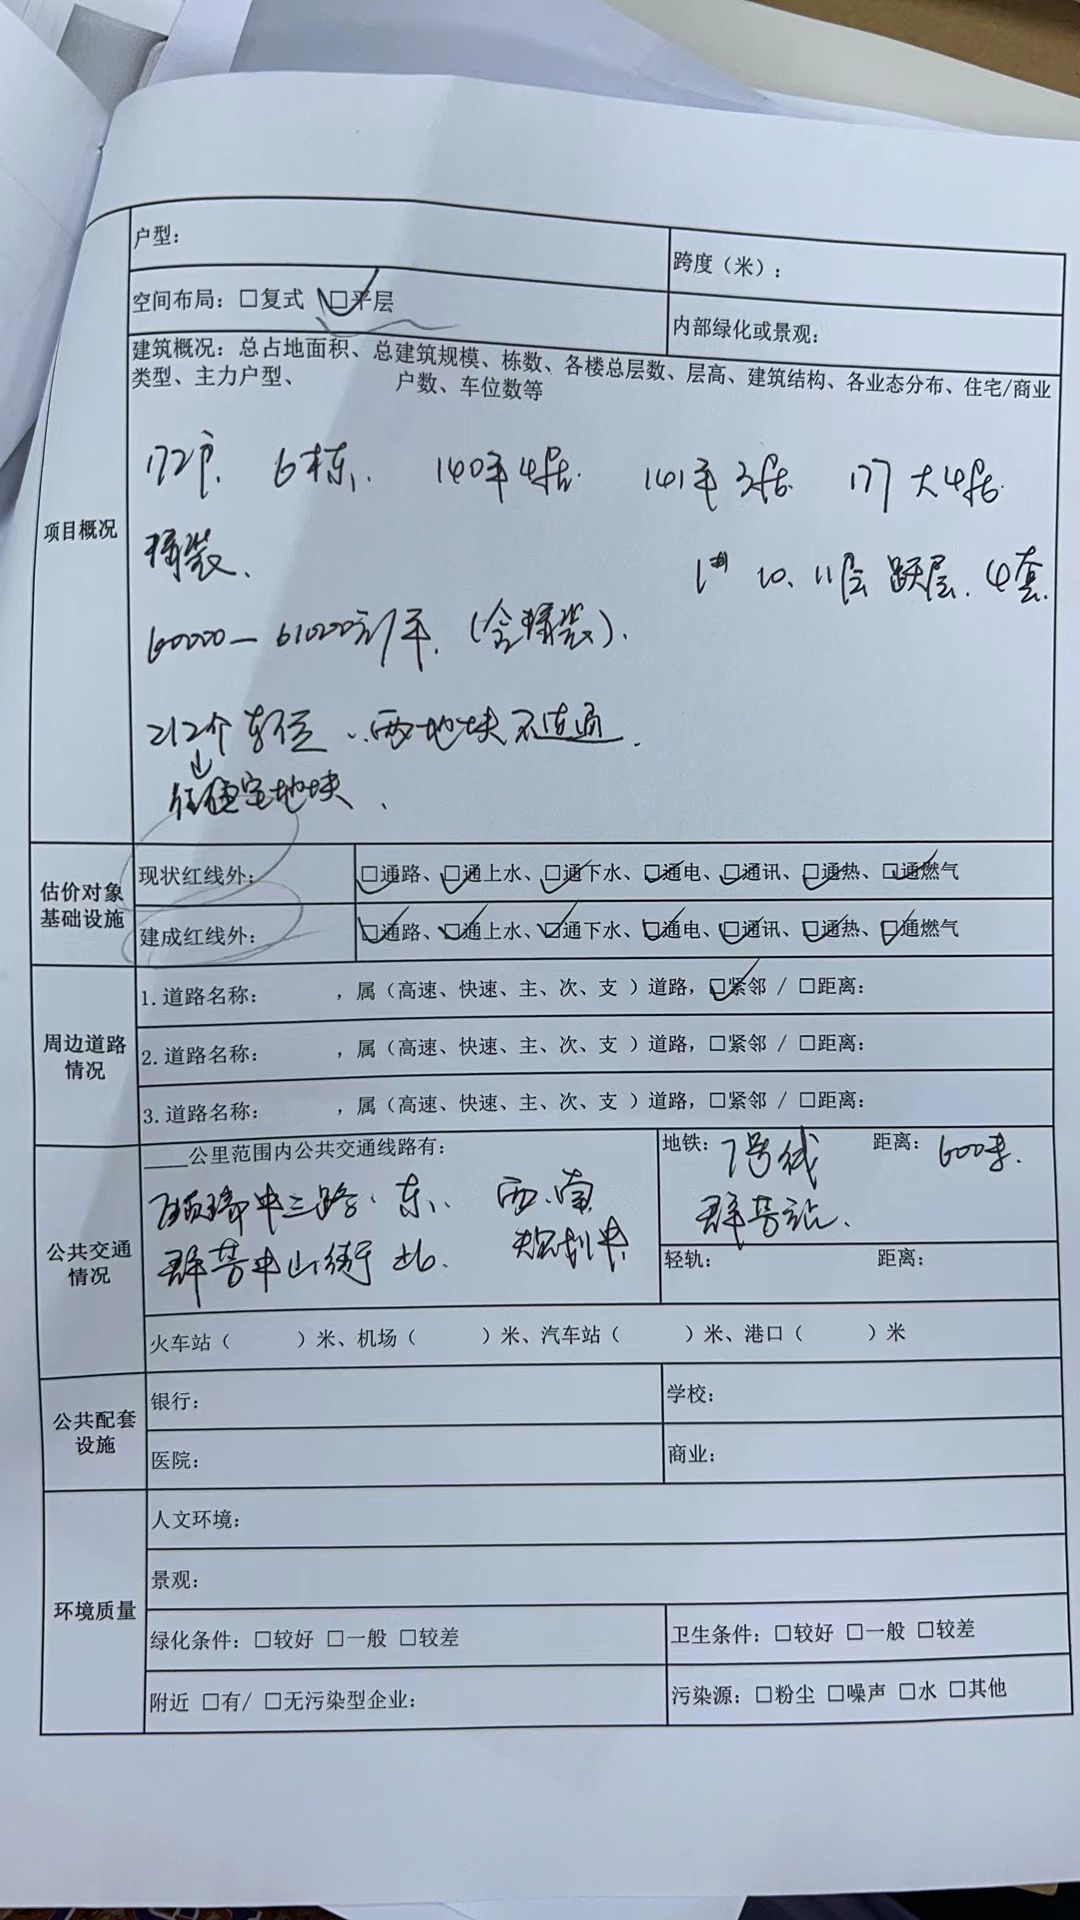 户型：
跨度（米）：
空间布局：□复式 □平层
内部绿化或景观：
建筑概况：总占地面积、总建筑规模、栋数、各楼总层数、层高、建筑结构、各业态分布、住宅/商业
类型、主力户型、 户数、车位数等
项目概况
172户. 6栋. 140平4居. 141平3居. 177大4居.
精装. 1# 10、11层 跃层. 4套.
60000—61000元/平.（含精装）.
212个车位 .. 两地块不连通.
住宅地块.
估价对象
基础设施
现状红线外：
□通路、□通上水、□通下水、□通电、□通讯、□通热、□通燃气
建成红线外：
□通路、□通上水、□通下水、□通电、□通讯、□通热、□通燃气
周边道路
情况
1.道路名称： ，属（高速、快速、主、次、支 ）道路，□紧邻 / □距离：
2.道路名称： ，属（高速、快速、主、次、支 ）道路，□紧邻 / □距离：
3.道路名称： ，属（高速、快速、主、次、支 ）道路，□紧邻 / □距离：
公共交通
情况
____公里范围内公共交通线路有：
中三路. 东、 西、南
群芳中街 北. 规划中
地铁：7号线 距离：600米.
群芳站.
轻轨： 距离：
火车站（ ）米、机场（ ）米、汽车站（ ）米、港口（ ）米
公共配套
设施
银行：
学校：
医院：
商业：
环境质量
人文环境：
景观：
绿化条件：□较好 □一般 □较差
卫生条件：□较好 □一般 □较差
附近 □有/ □无污染型企业：
污染源：□粉尘 □噪声 □水 □其他